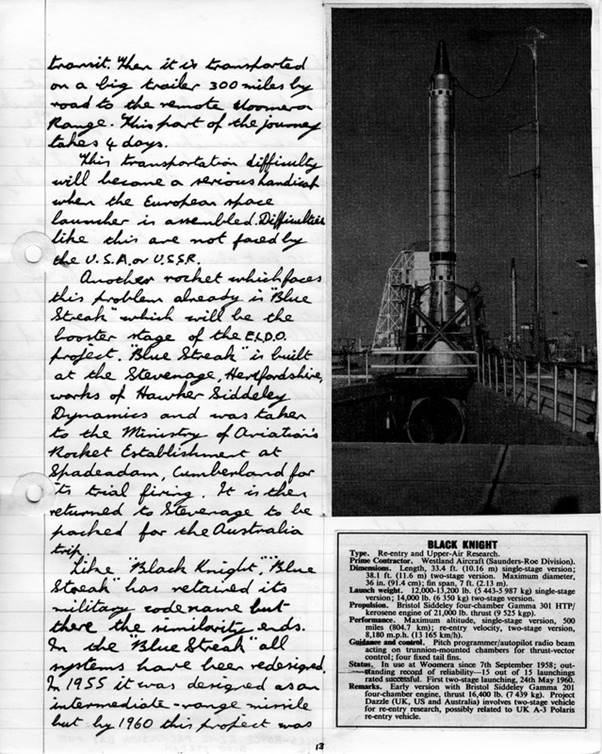 transit. Then it is transported
on a big trailer 300 miles by
road to the remote Woomera
Range. This part of the journey
takes 4 days.
This transportation difficulty
will become a serious handicap
when the European space
launcher is assembled. Difficulties
like this are not faced by
the U.S.A. or U.S.S.R.
Another rocket which faces
this problem already is "Blue
Streak" which will be the
booster stage of the E.L.D.O.
project. "Blue Streak" is built
at the Stevenage, Hertfordshire,
works of Hawker Siddeley
Dynamics and was taken
to the Ministry of Aviation's
Rocket Establishment at
Spadeadam, Cumberland for
its trial firing. It is then
returned to Stevenage to be
packed for the Australia
trip.
Like "Black Knight", "Blue
Streak" has retained its
military codename but
there the similarity ends.
In the "Blue Streak" all
systems have been redesigned.
In 1955 it was designed as an
intermediate-range missile
but by 1960 this project was
BLACK KNIGHT
Type. Re-entry and Upper-Air Research.
Prime Contractor. Westland Aircraft (Saunders-Roe Division).
Dimensions. Length, 33.4 ft. (10.16 m) single-stage version;
38.1 ft. (11.6 m) two-stage version. Maximum diameter,
36 in. (91.4 cm); fin span, 7 ft. (2.13 m).
Launch weight. 12,000-13,200 lb. (5 443-5 987 kg) single-stage
version; 14,000 lb. (6 350 kg) two-stage version.
Propulsion. Bristol Siddeley four-chamber Gamma 301 HTP/
kerosene engine of 21,000 lb. thrust (9 525 kgp).
Performance. Maximum altitude, single-stage version, 500
miles (804.7 km); re-entry velocity, two-stage version,
8,180 m.p.h. (13 165 km/h).
Guidance and control. Pitch programmer/autopilot radio beam
acting on trunnion-mounted chambers for thrust-vector
control; four fixed tail fins.
Status. In use at Woomera since 7th September 1958; out-
standing record of reliability—15 out of 15 launchings
rated successful. First two-stage launching, 24th May 1960.
Remarks. Early version with Bristol Siddeley Gamma 201
four-chamber engine, thrust 16,400 lb. (7 439 kg). Project
Dazzle (UK, US and Australia) involves two-stage vehicle
for re-entry research, possibly related to UK A-3 Polaris
re-entry vehicle.